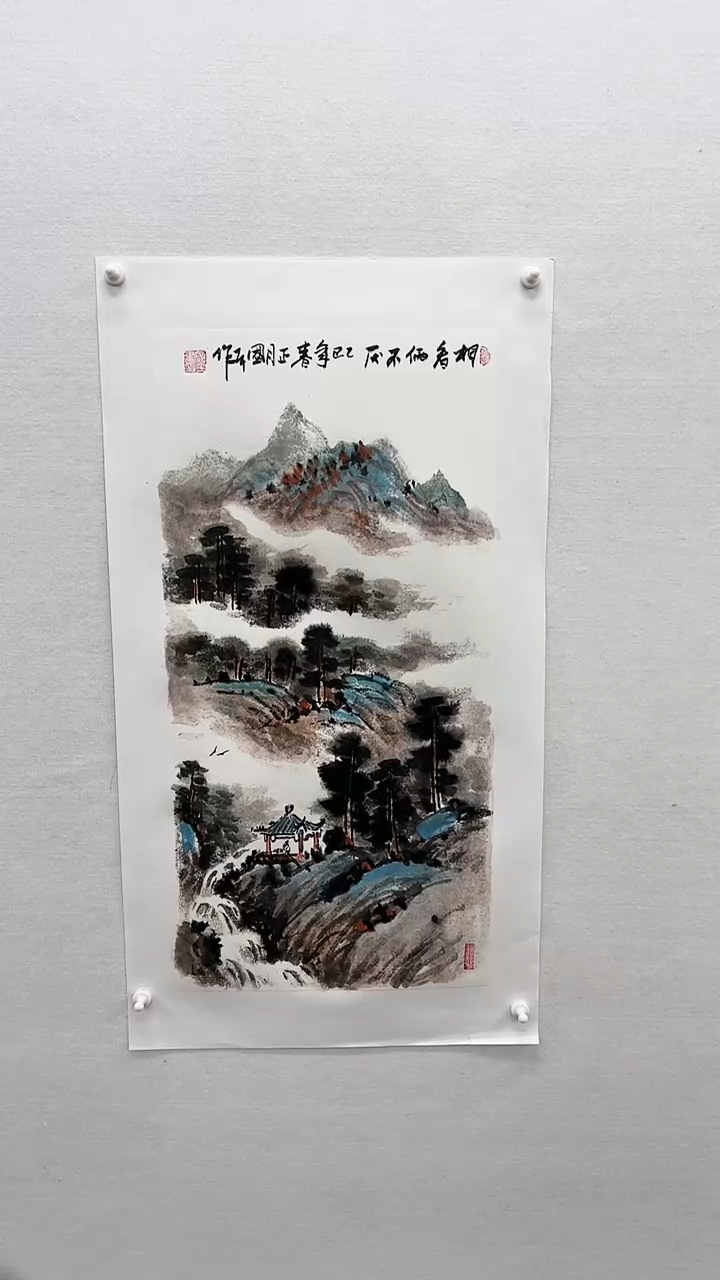 相看两不厌 乙巳年春正月國兵作